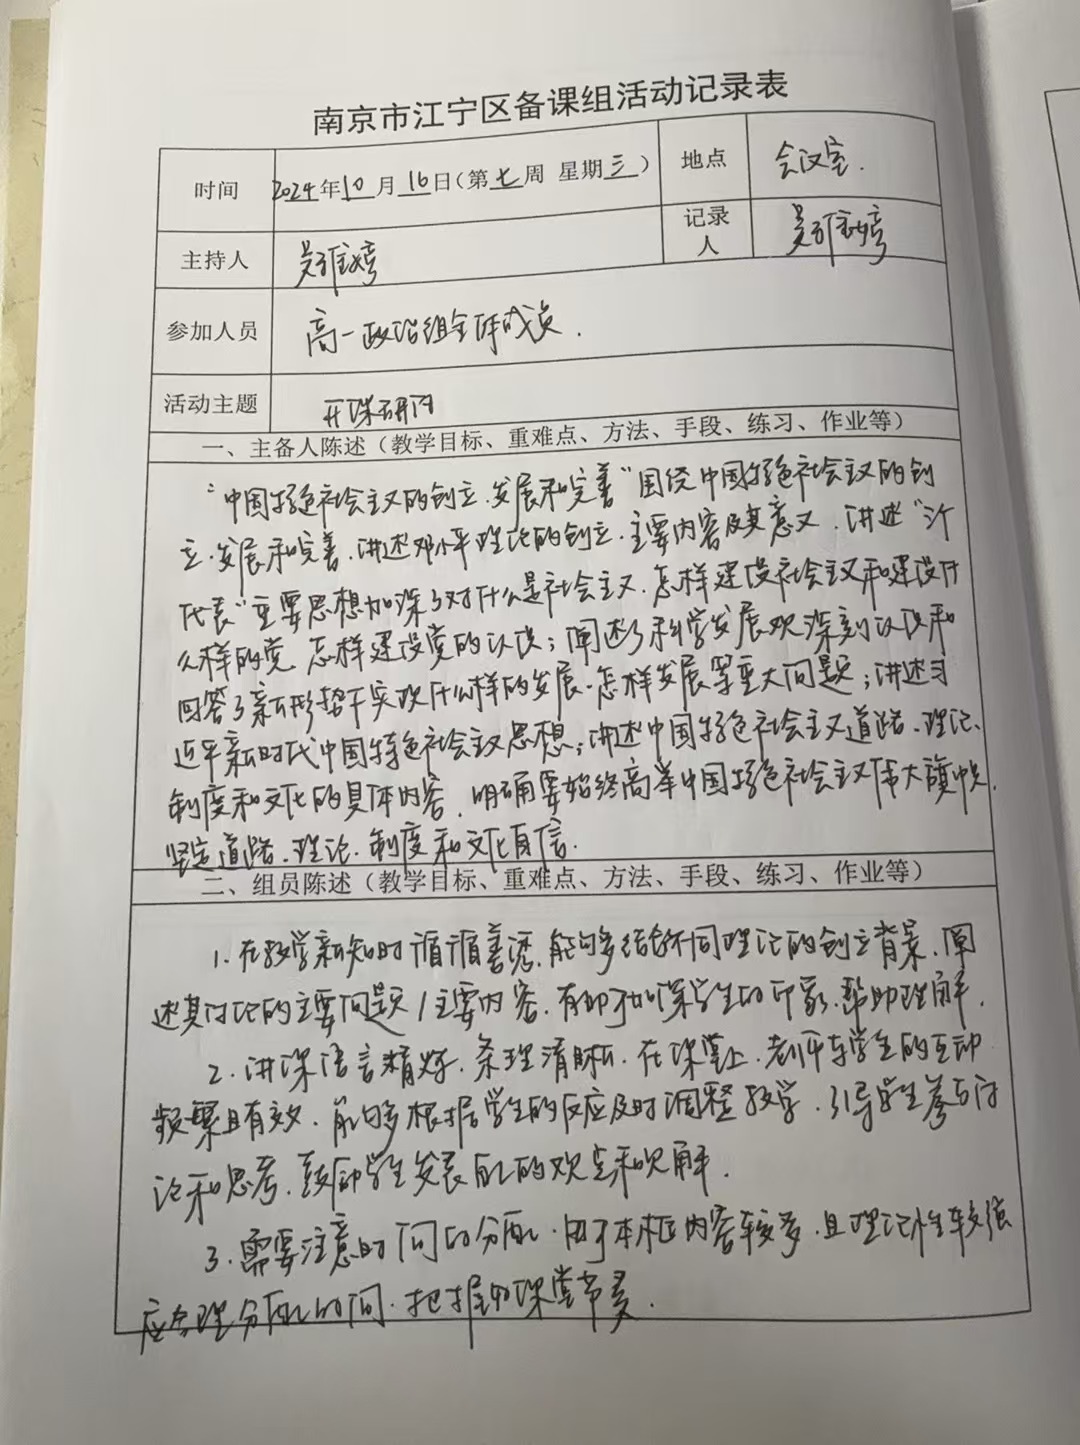 南京市江宁区备课组活动记录表
时间 2024年10月16日(第七周 星期三) 地点 会议室.
主持人 吴雅婷 记录人 吴雅婷
参加人员 高一政治组全体成员.
活动主题 开课研讨
一、主备人陈述（教学目标、重难点、方法、手段、练习、作业等）
"中国特色社会主义的创立、发展和完善"围绕中国特色社会主义的创
立、发展和完善,讲述邓小平理论的创立、主要内容及其意义,讲述"三个
代表"主要思想加深了对什么是社会主义、怎样建设社会主义和建设什
么样的党 怎样建设党的认识;阐述了科学发展观深刻认识和
回答了新形势下实现什么样的发展、怎样发展等重大问题;讲述习
近平新时代中国特色社会主义思想;讲述中国特色社会主义道路、理论、
制度和文化的具体内容,明确要始终高举中国特色社会主义伟大旗帜,
坚定道路、理论、制度和文化自信.
二、组员陈述（教学目标、重难点、方法、手段、练习、作业等）
1.在教学新知时循循善诱,能够多结合不同理论的创立背景,阐
述其讨论的主要问题/主要内容,有助于加深学生的印象,帮助理解.
2.讲课语言精炼,条理清晰,在课堂上,老师与学生的互动
频繁且有效,能够根据学生的反应及时调整教学,引导学生参与讨
论和思考,鼓励学生发表自己的观点和见解.
3.需要注意时间的分配,由于本框内容较多,且理论性较强
应合理分配时间,把握好课堂节奏.